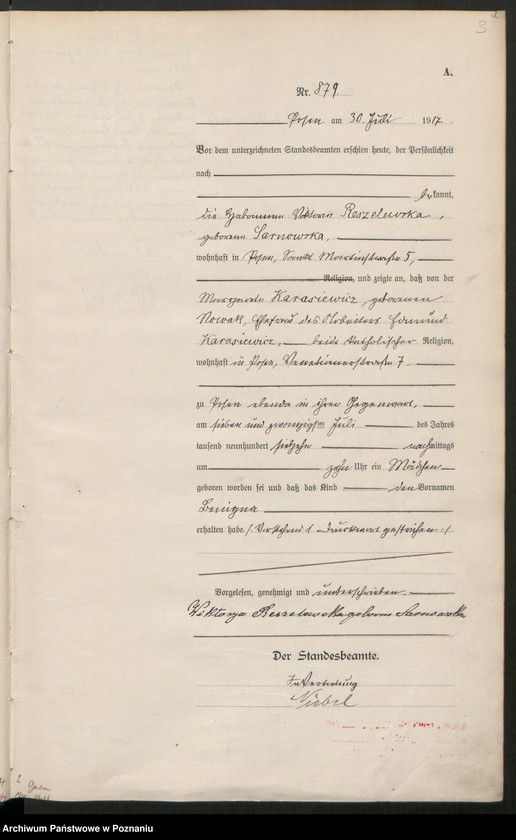 3
A.
Nr. 879.
Posen am 30. Juli 1917.
Vor dem unterzeichneten Standesbeamten erschien heute, der Persönlichkeit
nach
bekannt,
die Hebamme Viktoria Reszelewska,
geborene Sarnowska,
wohnhaft in Posen, Sankt Martinstraße 5,
Religion, und zeigte an, daß von der
Margarete Karasiewicz, geborenen
Nowak, Ehefrau des Arbeiters Edmund
Karasiewicz, beide katholischer Religion,
wohnhaft in Posen, Venetianerstraße 7
zu Posen ebenda in ihrer Gegenwart,
am sieben und zwanzigsten Juli des Jahres
tausend neunhundert siebzehn nachmittags
um zehn Uhr ein Mädchen
geboren worden sei und daß das Kind den Vornamen
Benigna
erhalten habe. /: Vorstehend 1 Druckwort gestrichen :/
Vorgelesen, genehmigt und unterschrieben.
Wiktorya Reszelewska geborne Sarnowska
Der Standesbeamte.
In Vertretung
Archiwum Państwowe w Poznaniu